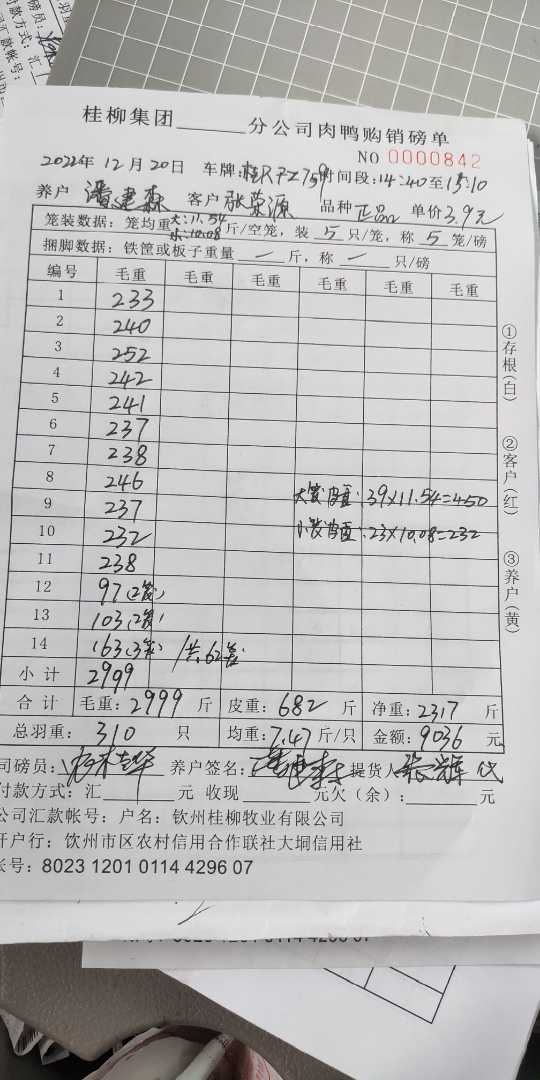 桂柳集团______分公司肉鸭购销磅单
NO 0000842
2022年12月20日 车牌:桂R 时间段:14:40至15:10
养户 潘建森 客户 张荣源 品种 正品 单价3.9元
笼装数据:笼均重大:11.54 小:10.08斤/空笼,装 5 只/笼,称 5 笼/磅
捆脚数据:铁筐或板子重量 一 斤,称 一 只/磅
编号 毛重 毛重 毛重 毛重 毛重 毛重
1 233
2 240
3 252
4 242
5 241
6 237
7 238
8 246
大 39×11.54=450
9 237
小 23×10.08=232
10 232
11 238
12 97(2笼)
13 103(2笼)
14 163(3笼) 共62笼
小计 2999
合计 毛重:2999 斤 皮重:682 斤 净重:2317 斤
总羽重: 310 只 均重:7.47 斤/只 金额:9036 元
司磅员: 养户签名: 提货人: 代
付款方式:汇______元 收现______元欠(余):______元
公司汇款帐号:户名:钦州桂柳牧业有限公司
开户行:钦州市区农村信用合作联社大垌信用社
帐号:8023 1201 0114 4296 07
①存根(白)
②客户(红)
③养户(黄)